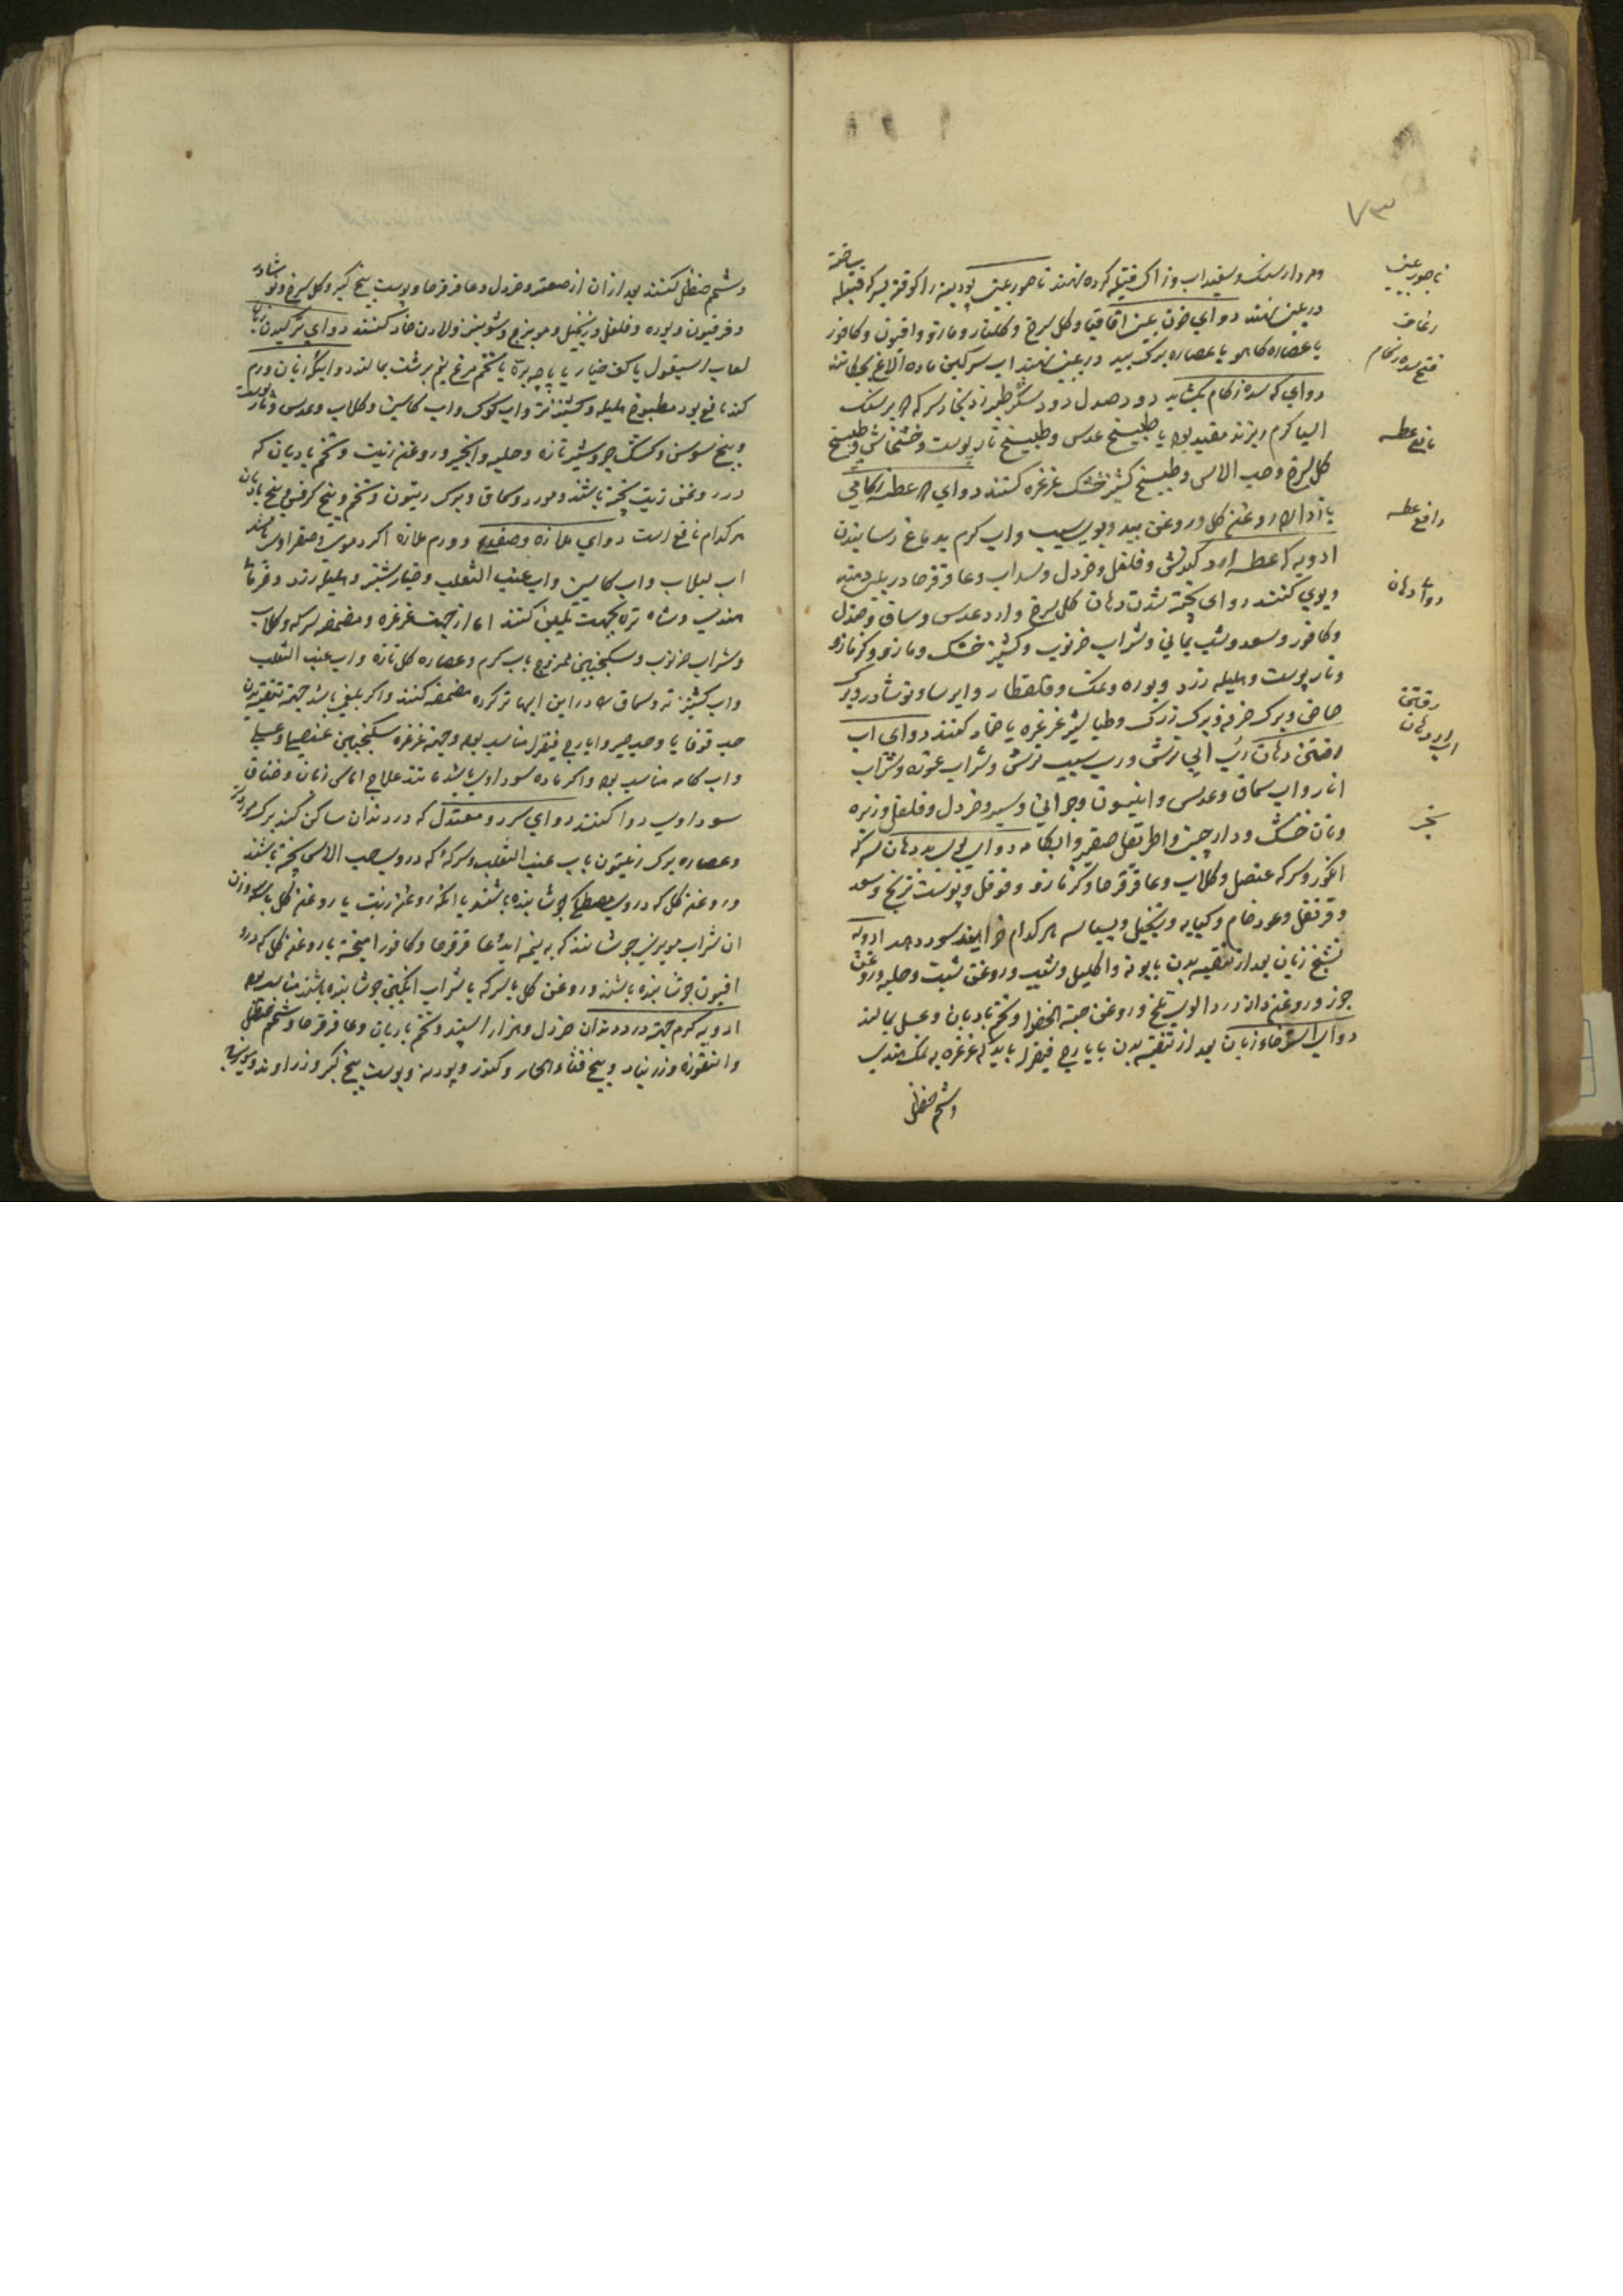 ۷۳
ناصور بینی
رعاف
فتح سده زکام
مانع عطسه
دافع عطسه
دواء دهان
رفتن
اب از دهان
بخر
ومردارسنک وسفیداب وزاک فتیله کرده نهند ناصور بینی پودینه را کوفته بسرکه فتیله ساخته
در بینی نهند دوای خون بینی اقاقیا وکل سرخ وکلنار ومازو وافیون وکافور
یا عصاره کاهو یا عصاره برک بید در بینی نهند اب سرکین ماده الاغ بچکانند
دوای که سده زکام بکشاید دود صندل دود شکر طبرزد بخار سرکه که بر سنک
اسیا کرم ریزند مفید بود یا طبیخ عدس وطبیخ نار پوست وخشخاش وطبیخ
کل سرخ وحب الاس وطبیخ کشنیز خشک غرغره کنند دوای که عطسه
باز دارد روغن کل وروغن بید وبوی سیب واب کرم بدماغ رسانیدن
ادویه که عطسه ارد کندش وفلفل وخردل وسداب وعاقرقرحا در بینی دمند
وبوی کنند دوای پخته شدن دهان کل سرخ وارد عدس وسماق وصندل
وکافور وسعد وشب یمانی وشراب خرنوب وکشنیز خشک ومازو وکزمازو
ونار پوست وهلیله زرد وبوره ونمک وقلقطار وایرسا ونوشادر وبرک
حماض وبرک خرفه وبرک زرک وطباشیر غرغره یا ضماد کنند دوای اب
رفتن دهان رب ابی ترش ورب سیب ترش وشراب غوره وشراب
انار واب سماق وعدس وانیسون وجو وسیر وخردل وفلفل وزیره
ونان خشک ودارچینی واطریفل صغیر وابکامه دوای بوی بد دهان سرکه
انکور وسرکه عنصل وکلاب وعاقرقرحا وکزمازو وفوفل وپوست ترنج وسعد
وقرنفل وعود خام وکبابه وزنجبیل وبسباسه هر کدام خایند سود دهد ادویه
تشنج زبان بعد از تنقیه بدن بابونه واکلیل وشبت وروغن شبت وحلبه وروغن
جوز وروغن دانه زردالوی تلخ وروغن حبة الخضرا وتخم بادیان وعسل بمالند
دوای استرخاء زبان بعد از تنقیه بدن بایارج فیقرا باید که غرغره به نمک هندی
وشحم حنظل
وشحم حنظل کنند بعد ازان از صعتر وخردل وعاقرقرحا وپوست بیخ کبر وکل سرخ ونوشادر
وفرفیون وبوره وفلفل وزنجبیل ومویزج وشونیز ولادن ضماد کنند دوای ترکیدن زبان
لعاب اسبغول یا کف خیار یا پاچه بره یا تخم مرغ نیم برشت بمالند دوای که زبان ورم
کند نافع بود مطبوخ هلیله وکشنیز تر واب کوک واب کاسنی وکلاب وعدس ونار پوست
وبیخ سوسن وکشک جو وشیر تازه وحلبه وانجیر وروغن زیت وتخم بادیان که
در روغن زیت پخته باشند ومورد وسماق وبرک زیتون وتخم وبیخ کرفس وبیخ بادیان
هر کدام نافع است دوای ملازه وضفدع وورم ملازه اکر دموی وصفراوی باشد
اب لبلاب واب کاسنی واب عنب الثعلب وخیارشنبر وهلیله زرد وخرمای
هندی وشاه تره بجهت تلیین کنند اما از جهت غرغره ومضمضه سرکه وکلاب
وشراب خرنوب وسکنجبین ممزوج باب کرم وعصاره کل تازه واب عنب الثعلب
واب کشنیز تر وسماق که در این ابها تر کرده مضمضه کنند واکر بلغمی باشد جهة تنقیه بدن
حب قوقایا وحب صبر وایارج فیقرا مناسب بود وجهة غرغره سکنجبین عنصلی وعسلی
واب کامه مناسب بود واکر ماده سوداوی باشد مانند علاج اماس زبان وخناق
سوداوی دوا کنند دوای سرد ومعتدل که درد دندان ساکن کند برک مورد
وعصاره برک زیتون باب عنب الثعلب وسرکه که در وی حب الاس پخته باشند
وروغن کل که در وی مصطکی جوشانیده باشند یا انکه روغن زیت یا روغن کل با سه وزن
ان شراب مویزی جوشانند که به نیمه اید عاقرقرحا وکافور امیخته با روغن کل که درو
افیون جوشانیده باشند وروغن کل با سرکه یا شراب انکبین جوشانیده باشند مناسب بود
ادویه کرم جهة درد دندان خردل وهزار اسپند وتخم بادیان وعاقرقرحا وشحم حنظل
وانغوزه وزرنباد وبیخ قثاء الحمار وکندر وپودنه وپوست بیخ کبر وزراوند ومویزج